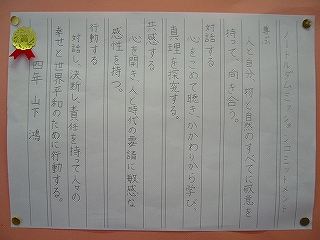 ノートルダムミッションコミットメント
尊ぶ
人と自分、物と自然のすべてに敬意を
持って、向き合う。
対話する
心をこめて聴き、かかわりから学び、
真理を探究する。
共感する
心を開き、人と時代の要請に敏感な
感性を持つ。
行動する
対話し、決断し、責任を持って人々の
幸せと世界平和のために行動する。
四年 山下 鴻